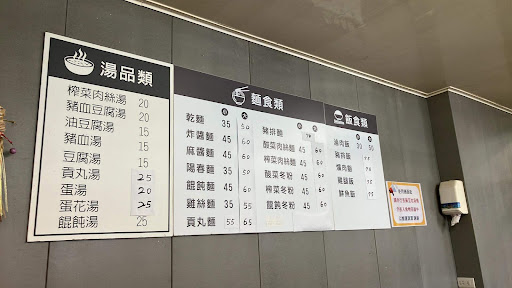 湯品類
榨菜肉絲湯 20
豬血豆腐湯 20
油豆腐湯 15
豬血湯 15
豆腐湯 15
貢丸湯 25
蛋湯 20
蛋花湯 25
餛飩湯 25
麵食類
小 大
乾麵 35 50
炸醬麵 45 60
麻醬麵 45 60
陽春麵 35 50
餛飩麵 45 60
雞絲麵 35 50
貢丸麵 55 65
豬排麵
酸菜肉絲麵 45 60
榨菜肉絲麵 45 60
酸菜冬粉 45 60
榨菜冬粉 45 60
餛飩冬粉 45 60
飯食類
滷肉飯 30 50
豬排飯
爌肉飯
雞腿飯